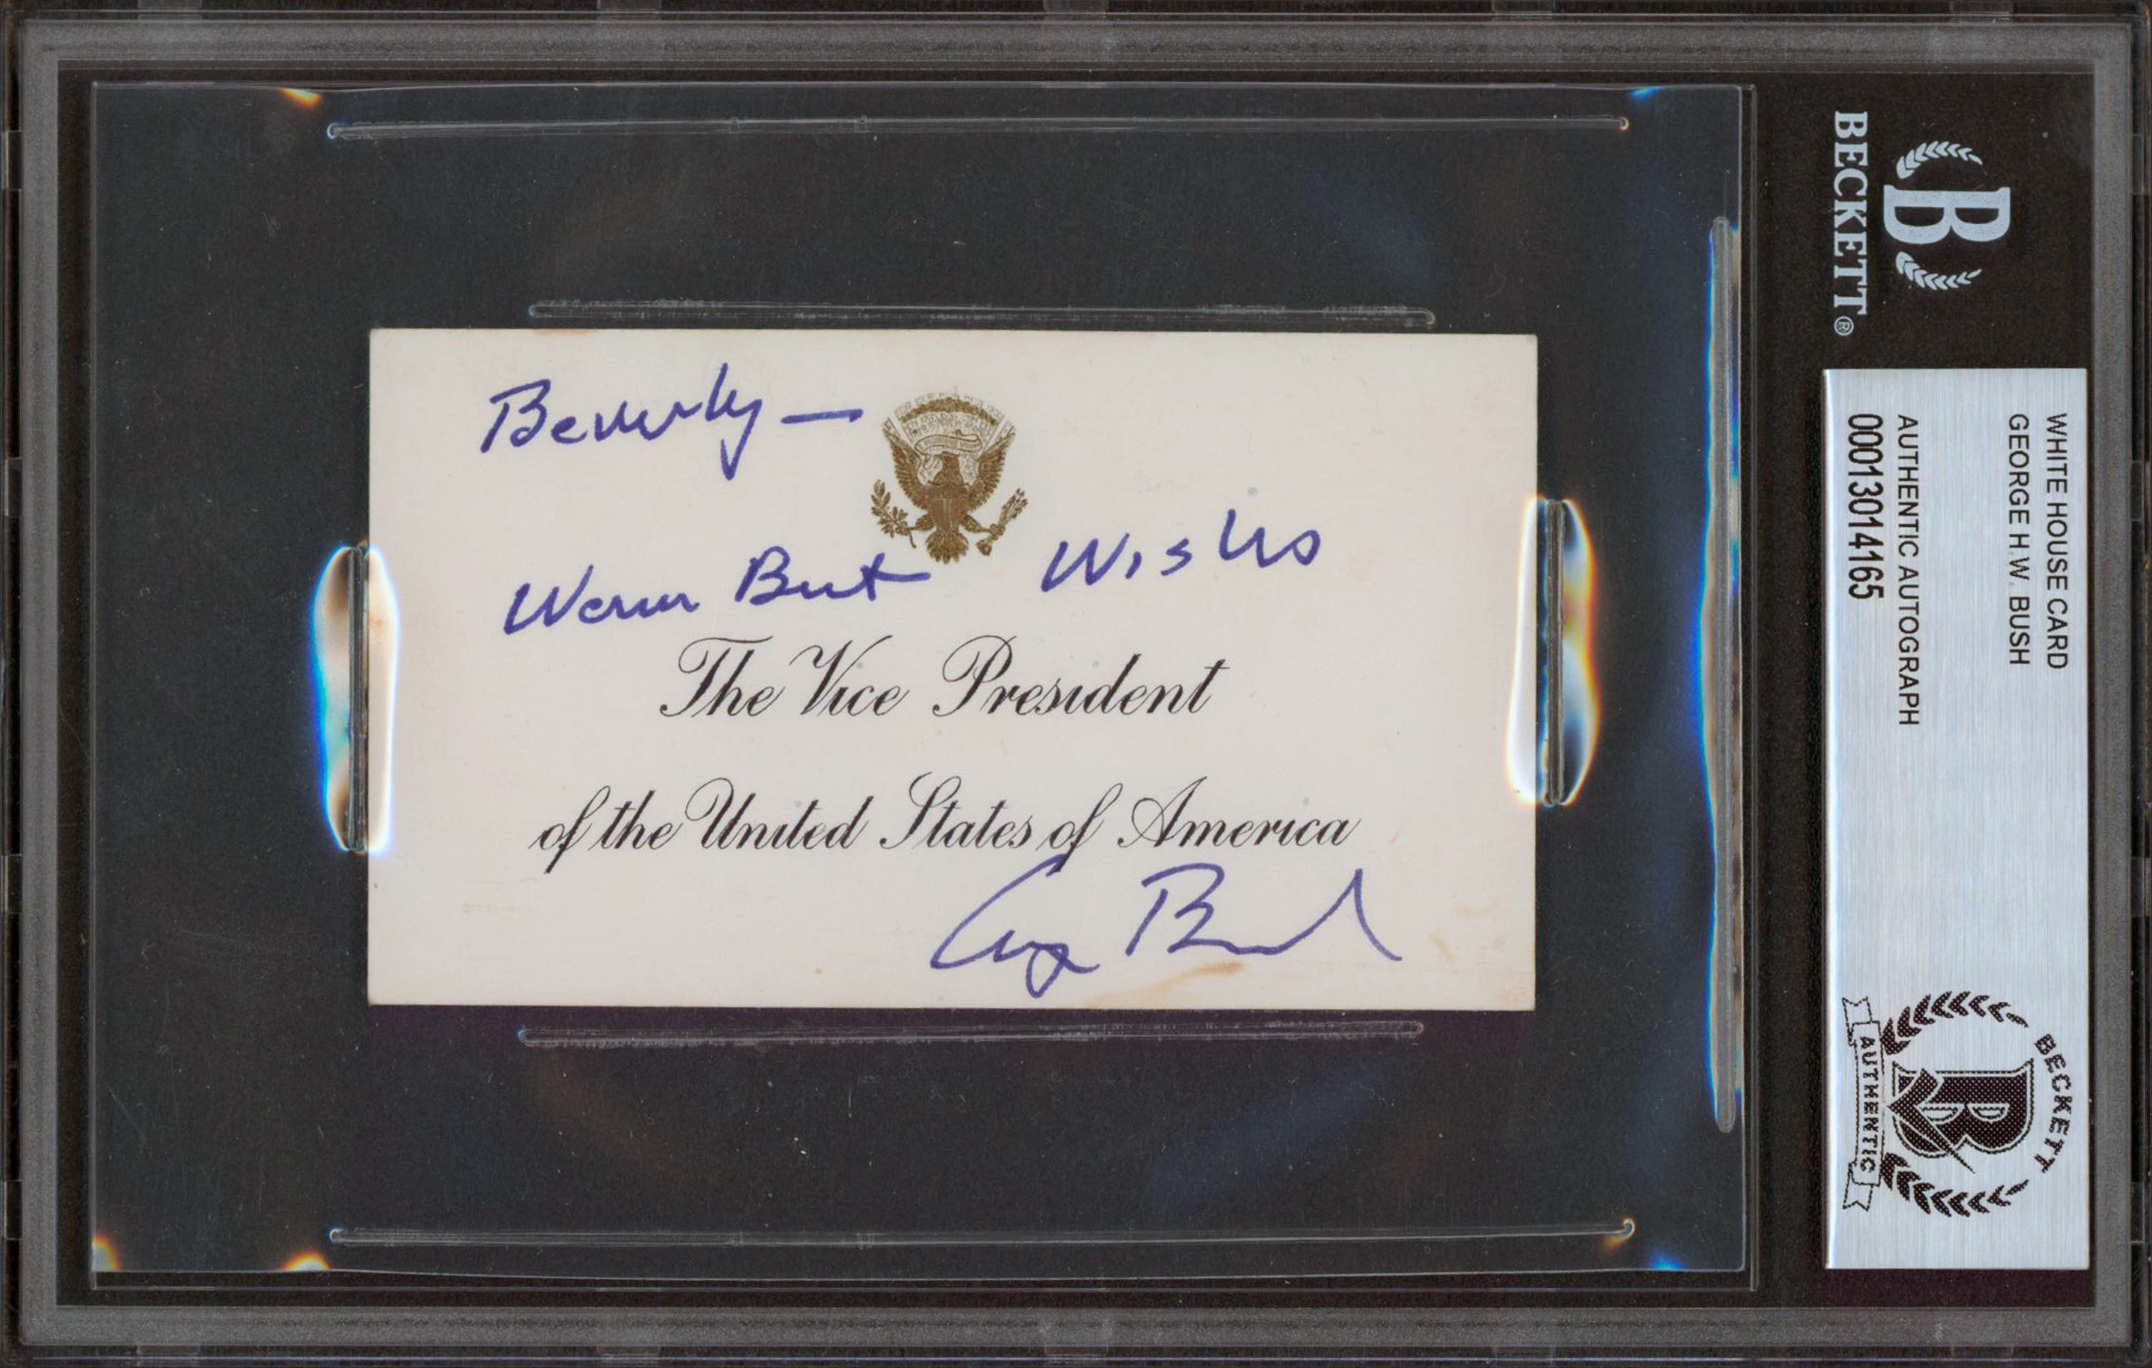 Beverly —
Warm Best Wishes
The Vice President
of the United States of America
George Bush
BECKETT®
WHITE HOUSE CARD
GEORGE H.W. BUSH
AUTHENTIC AUTOGRAPH
00013014165
BECKETT
AUTHENTIC